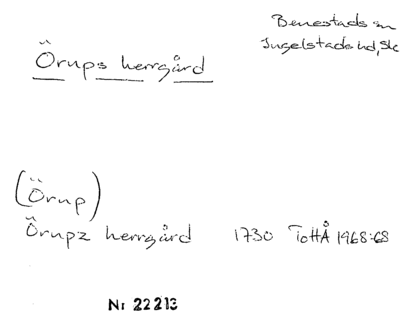 Benestads sn
Ingelstads hd, Sk
Örups herrgård
(Örup)
Örupz herrgård 1730 ToHÅ 1968:68
Nr 22213